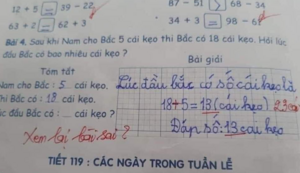 12 + 5 39 - 22
87 - 51 > 68 - 34
63 + 2 62 + 3
34 + 3 = 98 - 6
Bài 4. Sau khi Nam cho Bắc 5 cái kẹo thì Bắc có 18 cái kẹo. Hỏi lúc
đầu Bắc có bao nhiêu cái kẹo ?
Tóm tắt
Bài giải
Nam cho Bắc : 5 cái kẹo.
Lúc đầu bắc có số cái kẹo là
Bắc có : 18 cái kẹo.
18+5=13 (cái kẹo) 23 cái
đầu Bắc có : cái kẹo ?
Đáp số: 13 cái kẹo
Xem lại bài sai ?
TIẾT 119 : CÁC NGÀY TRONG TUẦN LỄ